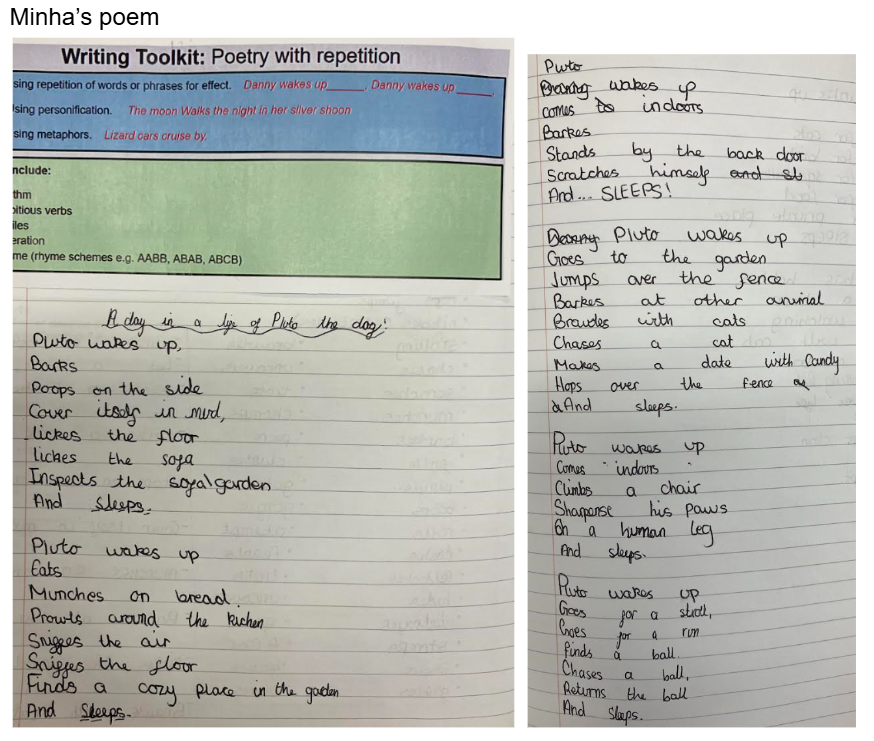 Minha's poem
Writing Toolkit: Poetry with repetition
sing repetition of words or phrases for effect. Danny wakes up______, Danny wakes up _____,
sing personification. The moon Walks the night in her silver shoon
sing metaphors. Lizard cars cruise by.
nclude:
thm
bitious verbs
iles
eration
me (rhyme schemes e.g. AABB, ABAB, ABCB)
A day in a life of Pluto the dog!
Pluto wakes up,
Barks
Poops on the side
Cover itself in mud,
lickes the floor
lickes the sofa
Inspects the sofa\garden
And sleeps.
Pluto wakes up
Eats
Munches on bread.
Prowls around the kichen
Sniffes the air
Sniffes the floor
Finds a cozy place in the garden
And Sleeps.
Pluto
wakes up
comes to indoors
Barkes
Stands by the back door
Scratches himself and st
And... SLEEPS!
Pluto wakes up
Goes to the garden
Jumps over the fence
Barkes at other animal
Brawles with cats
Chases a cat
Makes a date with Candy
Hops over the fence
And sleeps.
Pluto wakes up
Comes indoors
Climbs a chair
Sharpense his paws
On a human leg
And sleeps.
Pluto wakes up
Goes for a stroll,
Goes for a run
finds a ball
Chases a ball,
Returns the ball
And Sleeps.